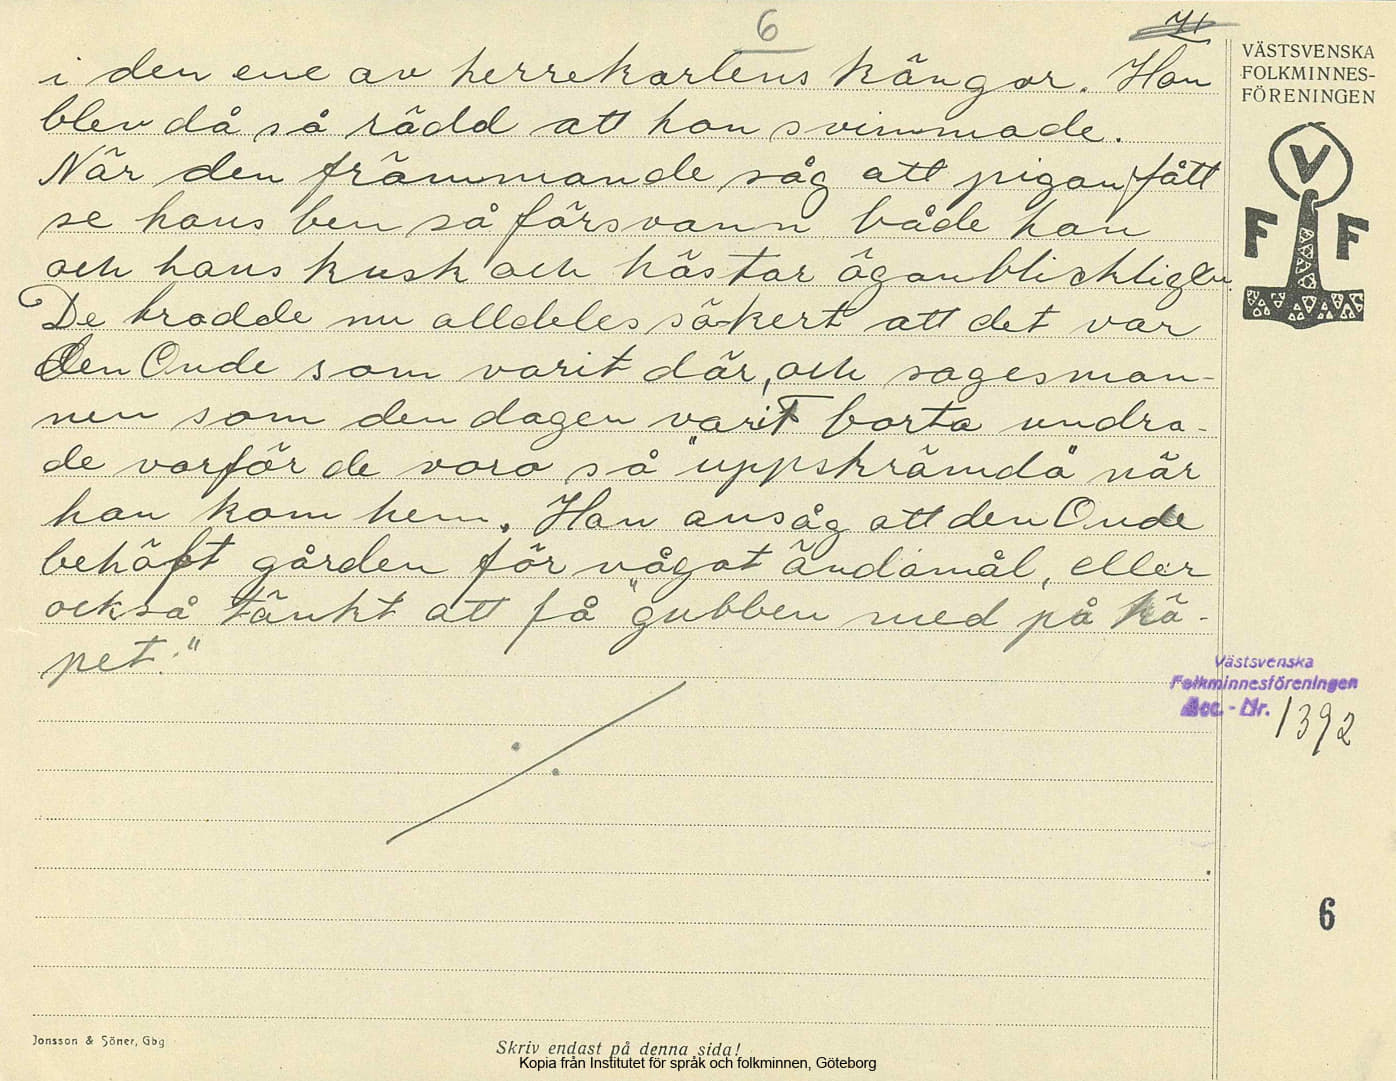 6
VÄSTSVENSKA
FOLKMINNES-
FÖRENINGEN
i den ene av herrekarlens kängor. Hon
blev då så rädd att hon svimmade.
När den främmande såg att pigan fått
se hans ben så försvann både han
och hans kusk och hästar ögonblickligen.
De trodde nu alldeles säkert att det var
den Onde som varit där, och sagesman-
nen som den dagen varit borta undra-
de varför de voro så "uppskrämda" när
han kom hem. Han ansåg att den Onde
behöft gården för något ändamål, eller
också tänkt att få "gubben med på kö-
pet."
V
F F
Västsvenska
Folkminnesföreningen
Acc. - Nr. 1392
6
Jonsson & Söner, Gbg
Skriv endast på denna sida!
Kopia från Institutet för språk och folkminnen, Göteborg